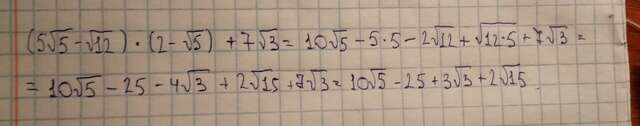 (5√5 - √12) · (2 - √5) + 7√3 = 10√5 - 5·5 - 2√12 + √12·5 + 7√3 =
= 10√5 - 25 - 4√3 + 2√15 + 7√3 = 10√5 - 25 + 3√3 + 2√15